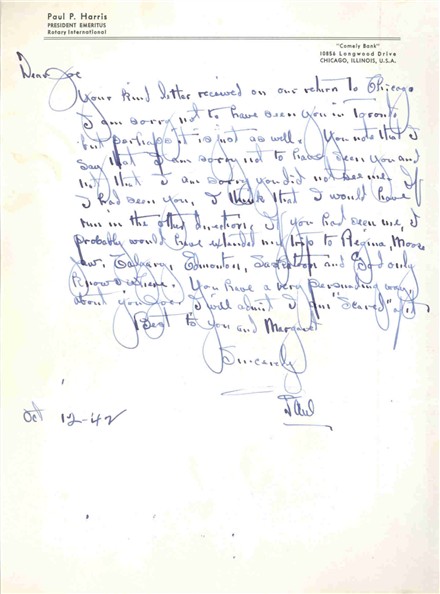 Paul P. Harris
PRESIDENT EMERITUS
Rotary International
"Comely Bank"
10856 Longwood Drive
CHICAGO, ILLINOIS, U.S.A.
Dear Joe
Your kind letter received on our return to Chicago
I am sorry not to have seen you in Toronto
but perhaps it is just as well. You note that I
say that I am sorry not to have seen you and
not that I am sorry you did not see me. If
I had seen you, I think that I would have
run in the other direction. If you had seen me, I
probably would have extended my trip to Regina, Moose
Jaw, Calgary, Edmonton, Saskatoon and God only
knows where. You have a very persuading way
about you Joe I will admit I am "Scared" of it
Best to you and Margaret
Sincerely
Paul
Oct 12-42